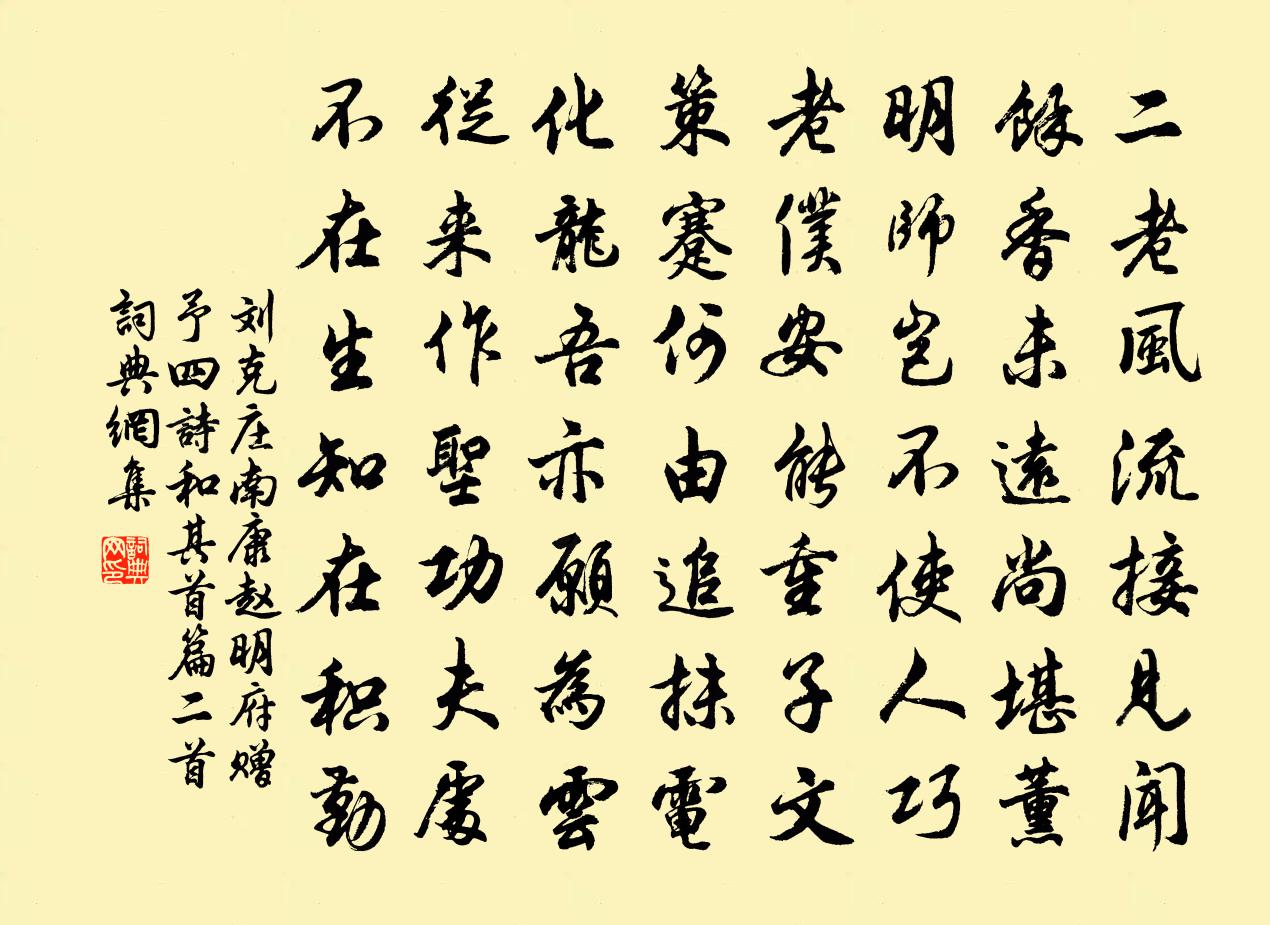 二老風流接見聞
餘香未遠尚堪薰
明師豈不使人巧
老僕安能重子文
策蹇何由追抹電
化龍吾亦願為雲
從来作聖功夫處
不在生知在积勤
刘克庄南康赵明府赠
予四詩和其首篇二首
詞典網集
詞典
网印